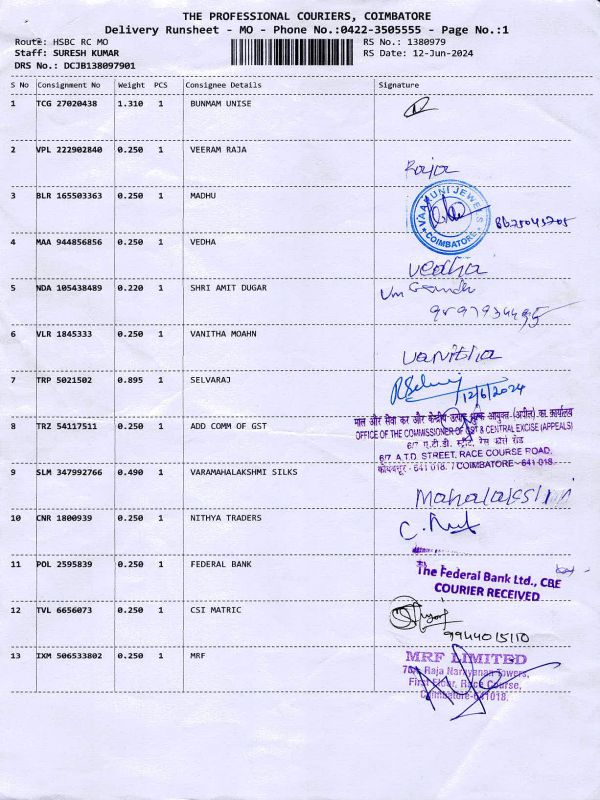 THE PROFESSIONAL COURIERS, COIMBATORE
Delivery Runsheet - MO - Phone No.:0422-3505555 - Page No.:1
Route: HSBC RC MO RS No.: 1380979
Staff: SURESH KUMAR RS Date: 12-Jun-2024
DRS No.: DCJB138097901
S No Consignment No Weight PCS Consignee Details Signature
1 TCG 27020438 1.310 1 BUNMAM UNISE
2 VPL 222902840 0.250 1 VEERAM RAJA
Raja
3 BLR 165503363 0.250 1 MADHU
COIMBATORE
4 MAA 944856856 0.250 1 VEDHA
vedha
5 NDA 105438489 0.220 1 SHRI AMIT DUGAR
6 VLR 1845333 0.250 1 VANITHA MOAHN
vanitha
7 TRP 5021502 0.895 1 SELVARAJ
12/6/2024
8 TRZ 54117511 0.250 1 ADD COMM OF GST
माल और सेवा कर और केंद्रीय उत्पाद शुल्क आयुक्त (अपील) का कार्यालय
OFFICE OF THE COMMISSIONER OF GST & CENTRAL EXCISE (APPEALS)
6/7 ए.टी.डी. स्ट्रीट, रेस कोर्स रोड
6/7 A.T.D. STREET, RACE COURSE ROAD,
कोयम्बटूर - 641 018. / COIMBATORE - 641 018.
9 SLM 347992766 0.490 1 VARAMAHALAKSHMI SILKS
Mahalakshmi
10 CNR 1800939 0.250 1 NITHYA TRADERS
11 POL 2595839 0.250 1 FEDERAL BANK
The Federal Bank Ltd., CBE
COURIER RECEIVED
12 TVL 6656073 0.250 1 CSI MATRIC
9944015110
13 IXM 506533802 0.250 1 MRF
MRF LIMITED
Raja Narayanan Towers,
First Floor, Race Course,
Coimbatore-641018.